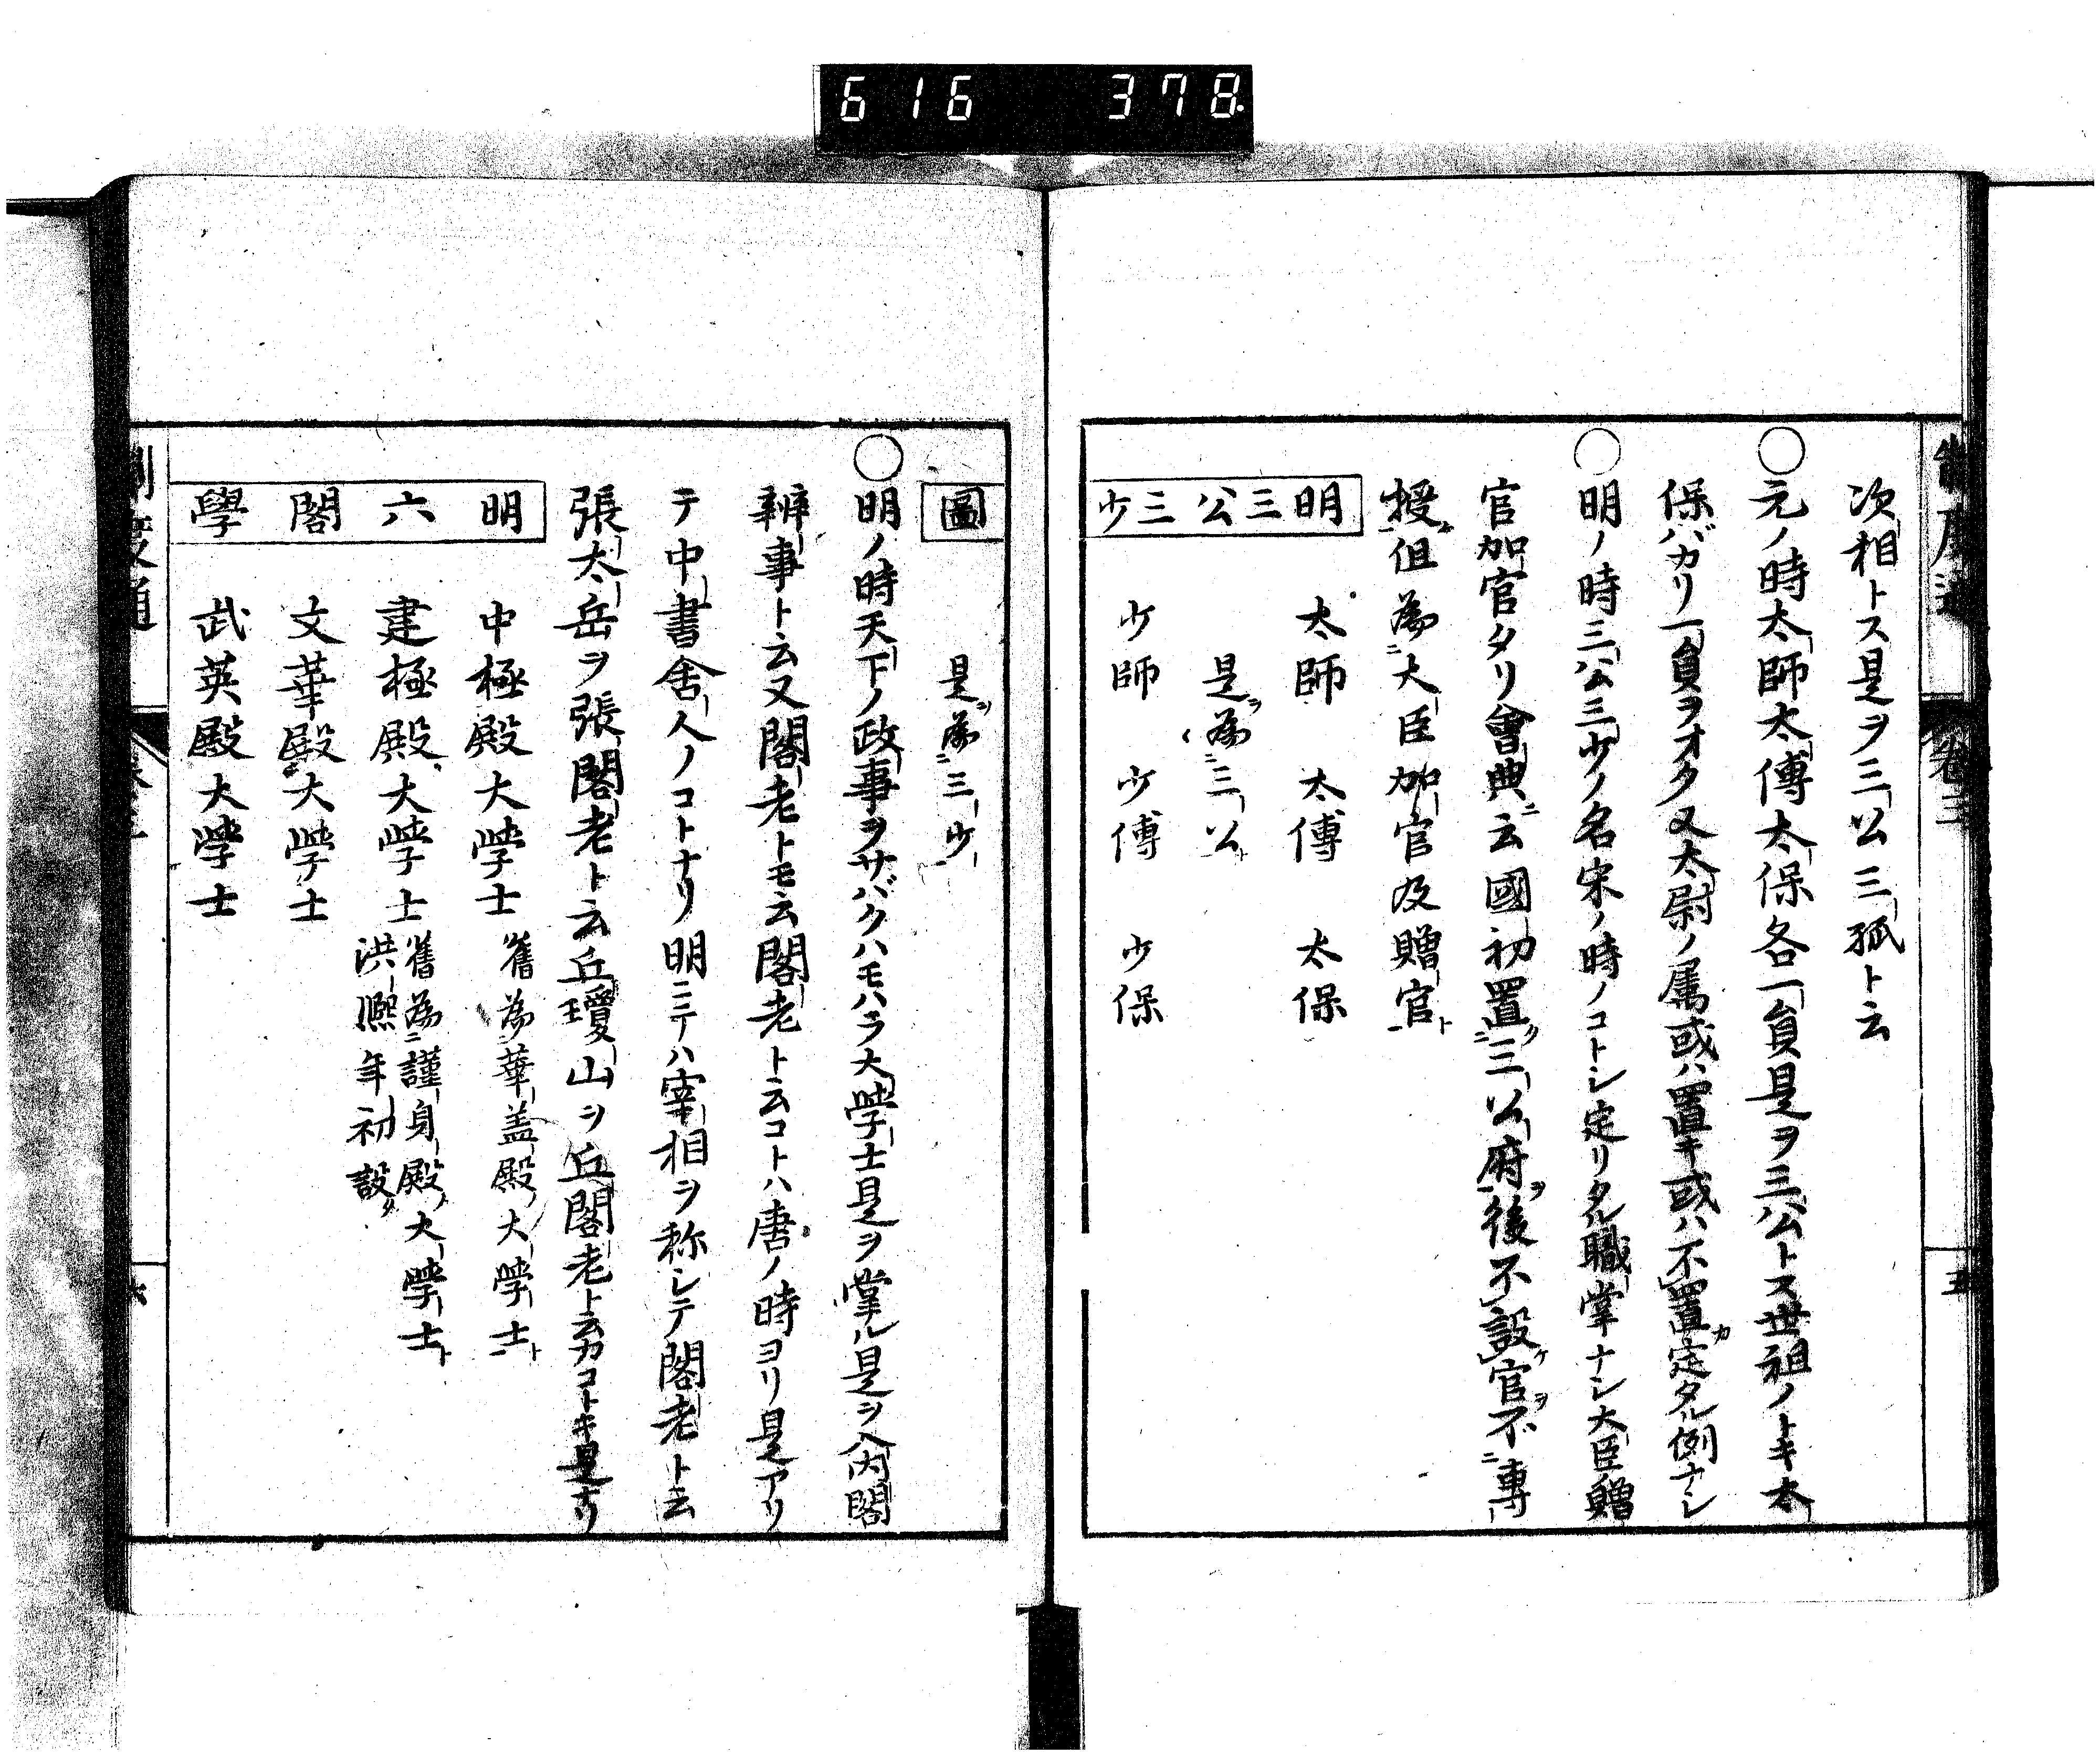 616 378
制度通 卷三 五
次相トス是ヲ三公三孤ト云
○元ノ時太師太傅太保各一員是ヲ三公トス世祖ノトキ太
保バカリ一員ヲオク又太尉ノ属或ハ置キ或ハ不置定タル例ナシ
○明ノ時三公三少ノ名宋ノ時ノコトシ定リタル職掌ナシ大臣贈
官加官タリ會典ニ云國初置三公府後不設官不専
授但為大臣加官及贈官
明三公三少
太師 太傅 太保
是為三公
少師 少傅 少保
圖
是為三少
○明ノ時天下ノ政事ヲサバクハモハラ大學士是ヲ掌ル是ヲ入内閣
辨事ト云又閣老トモ云閣老ト云コトハ唐ノ時ヨリ是アリ
テ中書舍人ノコトナリ明ニテハ宰相ヲ称シテ閣老ト云
張太岳ヲ張閣老ト云丘瓊山ヲ丘閣老ト云カコトキ是ナリ
明六閣學
中極殿大學士 舊為華盖殿大學士
建極殿大學士 舊為謹身殿大學士
洪熈年初設
文華殿大學士
武英殿大學士
制度通